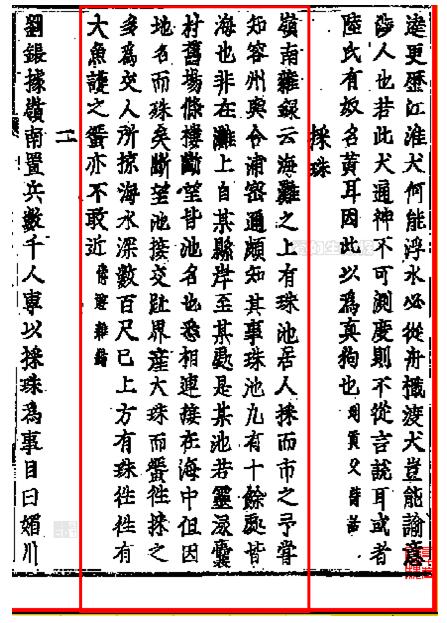 遠更歷江淮犬何能浮水必從舟檝渡犬豈能諭意
涉人也若此犬通神不可測度則不從言說耳或者
陸氏有奴名黃耳因此以為真狗也劉貢父詩話
採珠
嶺南雜録云海灘之上有珠池居人採而市之予甞
知容州與合浦密邇頗知其事珠池凡有十餘處皆
海也非在灘上自某縣岸至某處是某池若靈渌囊
村舊塲條樓斷望皆池名也悉相連接在海中但因
地名而珠矣斷望池接交趾界産大珠而蜑往採之
多為交人所掠海水深數百尺已上方有珠往往有
大魚護之蜑亦不敢近倦遊雜錄
二
劉鋹據嶺南置兵數千人專以採珠為事目曰媚川